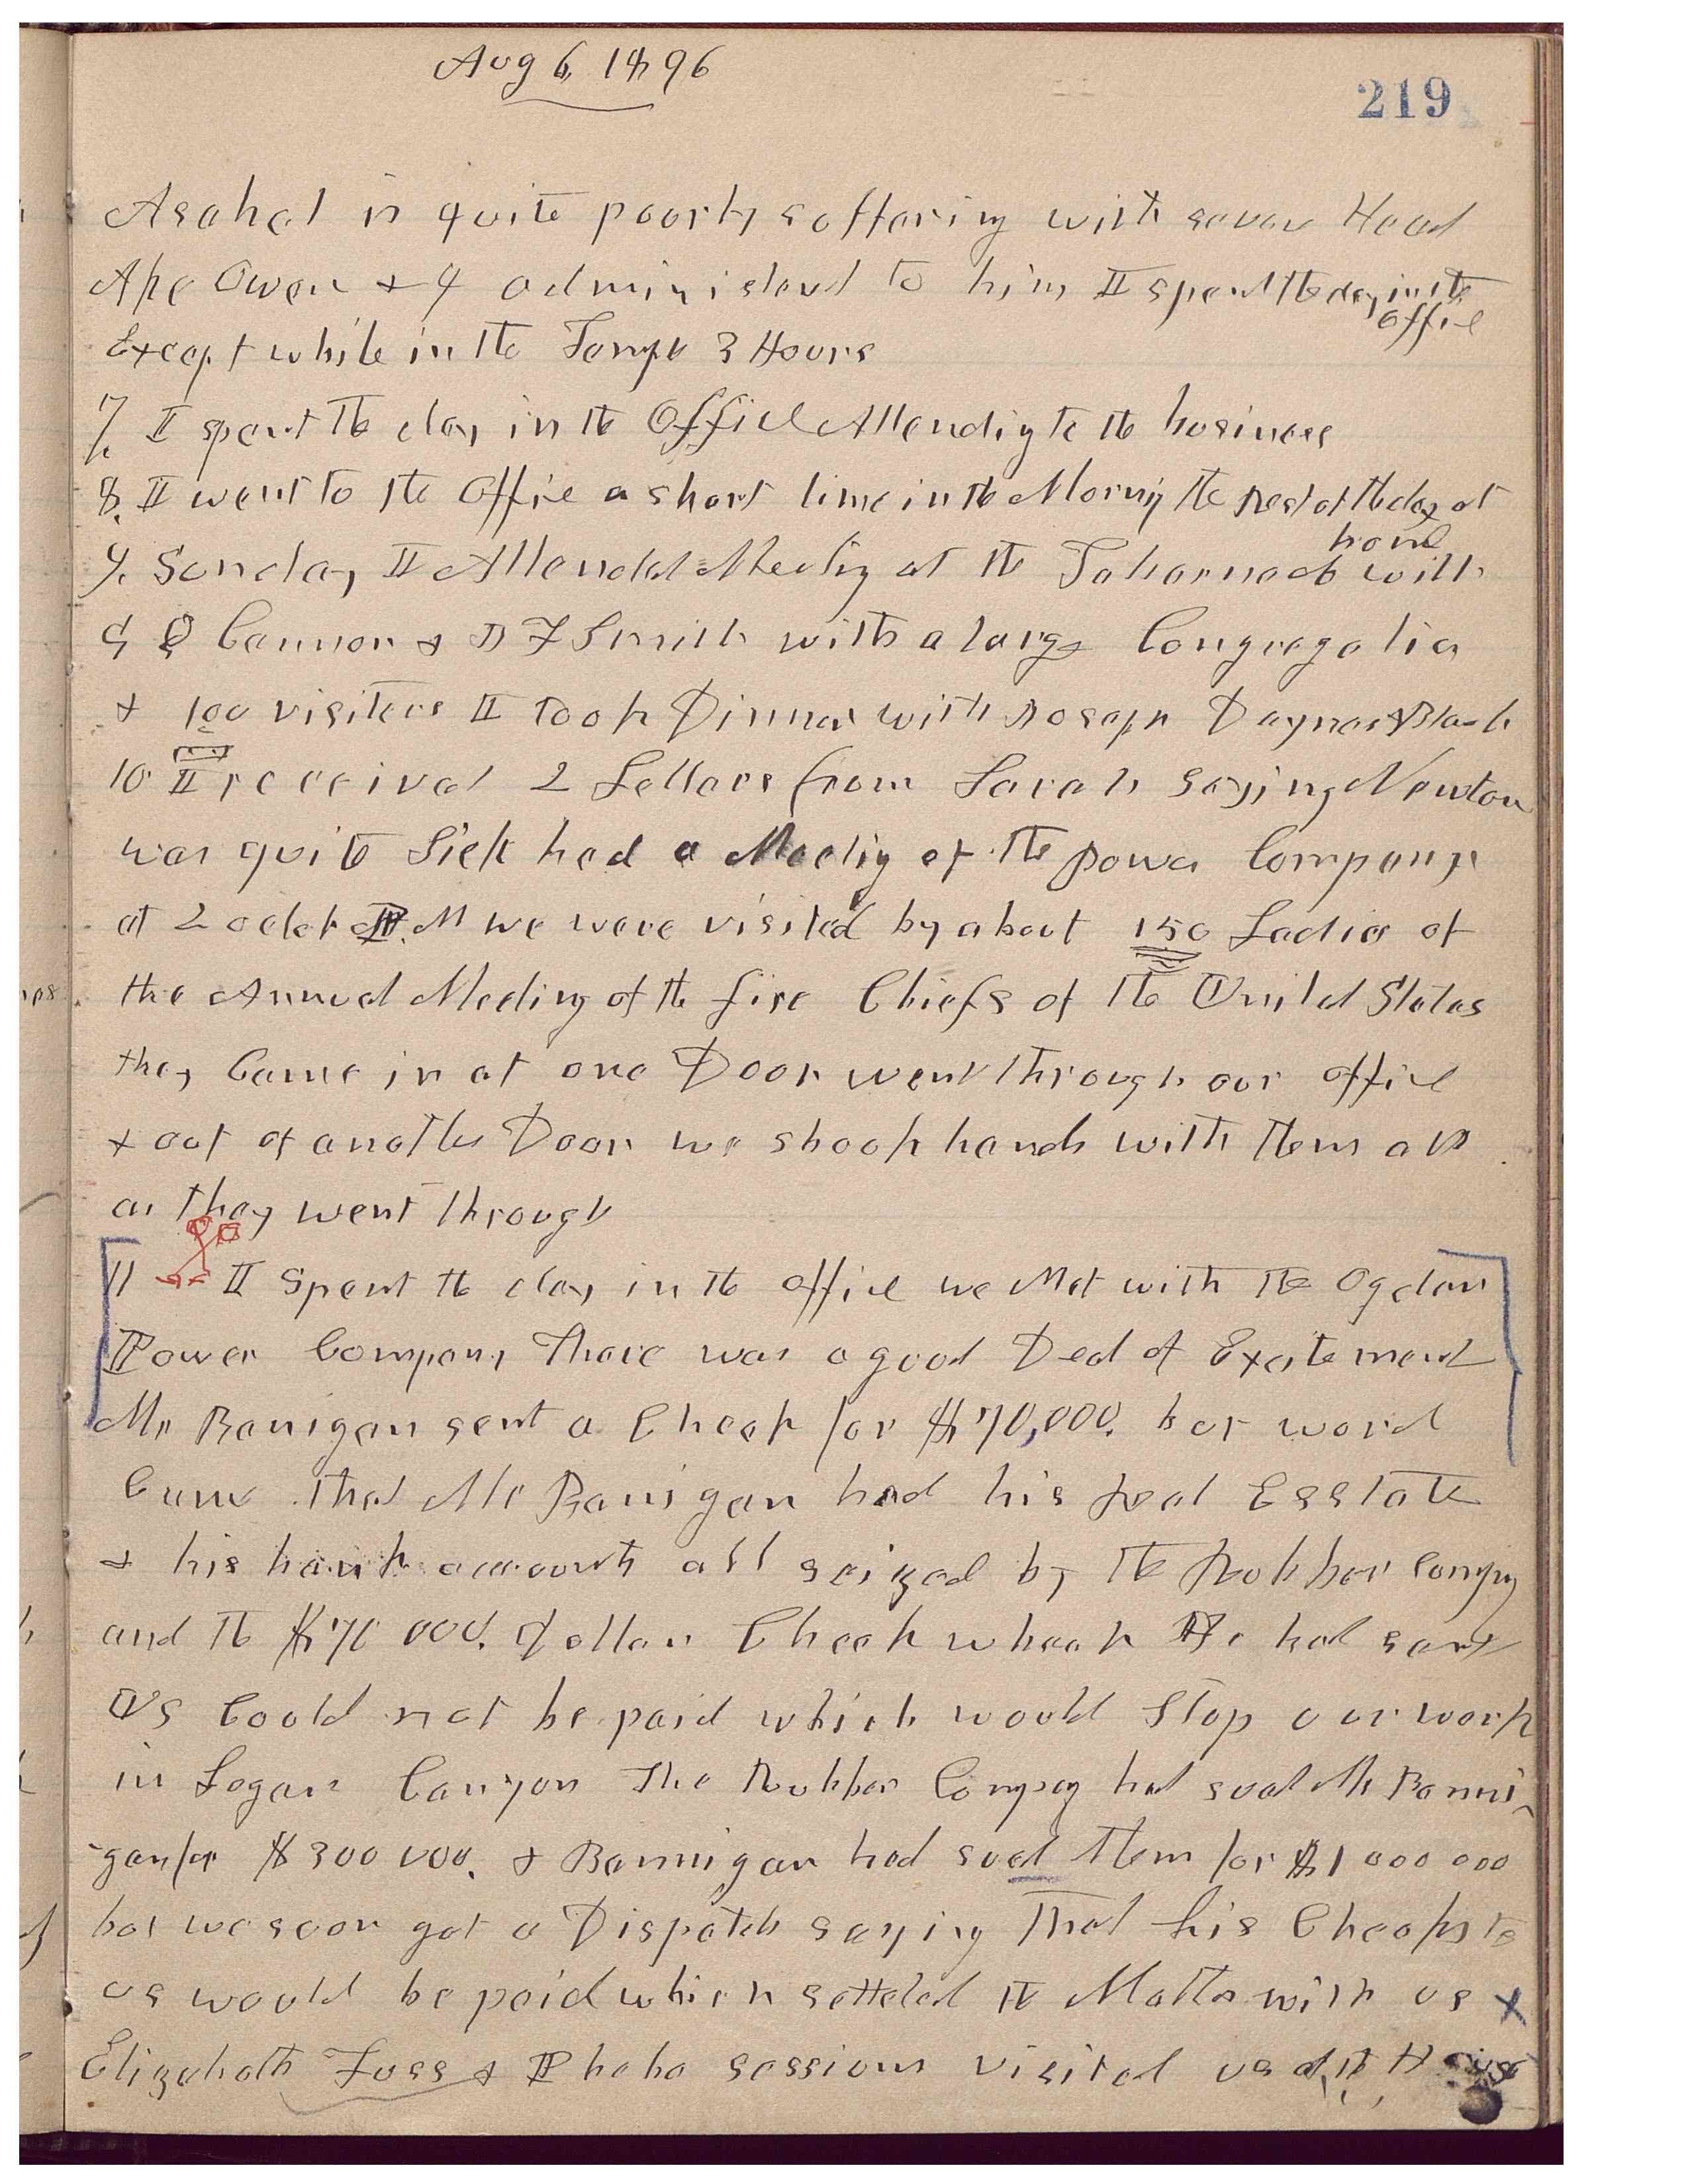 Aug 6, 1896
219
Asahel is quite poorly suffering with sever Head
Ake Owen & I administerd to him I spent the day in the
office
Except while in the Temple 3 Hours
7. I spent the day in the Office Attending to the business
8. I went to the Office a short time in the Morning the rest of the day at
home
9. Sunday I Attended Meeting at the Tabernacle with
G Q Cannon & J F Smith with a large Congregation
& 100 visitors I took Dinner with Joseph Daynes
10 I received 2 Letters from Sarah saying Newton
was quite Sick had a Meeting of the power Company
at 2 oclok P.M we were visited by about 150 Ladies of
the Annual Meeting of the fire Chiefs of the United States
they Came in at one Door went through our office
& out of another Door we shook hands with them all
as they went through
11 I Spent the day in the office we Met with the Ogden
Power Company There was a good Deal of Excitement
Mr Banigan sent a Check for $70,000. but word
Came that Mr Banigan had his real Esstate
& his bank accounts all seized by the Rubber Company
and the $70 000. dollar Check he had sent
us Could not be paid which would Stop our work
in Logan Canyon The Rubber Company had sued Mr Banni-
-gan for $300 000. & Bannigan had sued them for $1 000 000
but we soon got a Dispatch saying that his Checks to
us would be paid which setteled the Matter with us X
Elizabeth Fuss & Phebe sessions visited us at the House